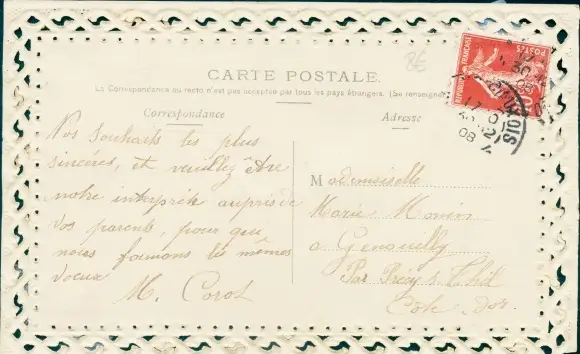 8€
CARTE POSTALE.
La Correspondance au recto n'est pas acceptée par tous les pays étrangers. (Se renseigner
Correspondance
Adresse
Nos souhaits les plus
sincères, et veuillez être
notre interprète auprès de
vos parents, pour que
nous formons les mêmes
voeux
M. Corot
Mademoiselle
Marie Monin
à Genouilly
Par
Côte d'or
POSTES
REPUBLIQUE FRANÇAISE
10